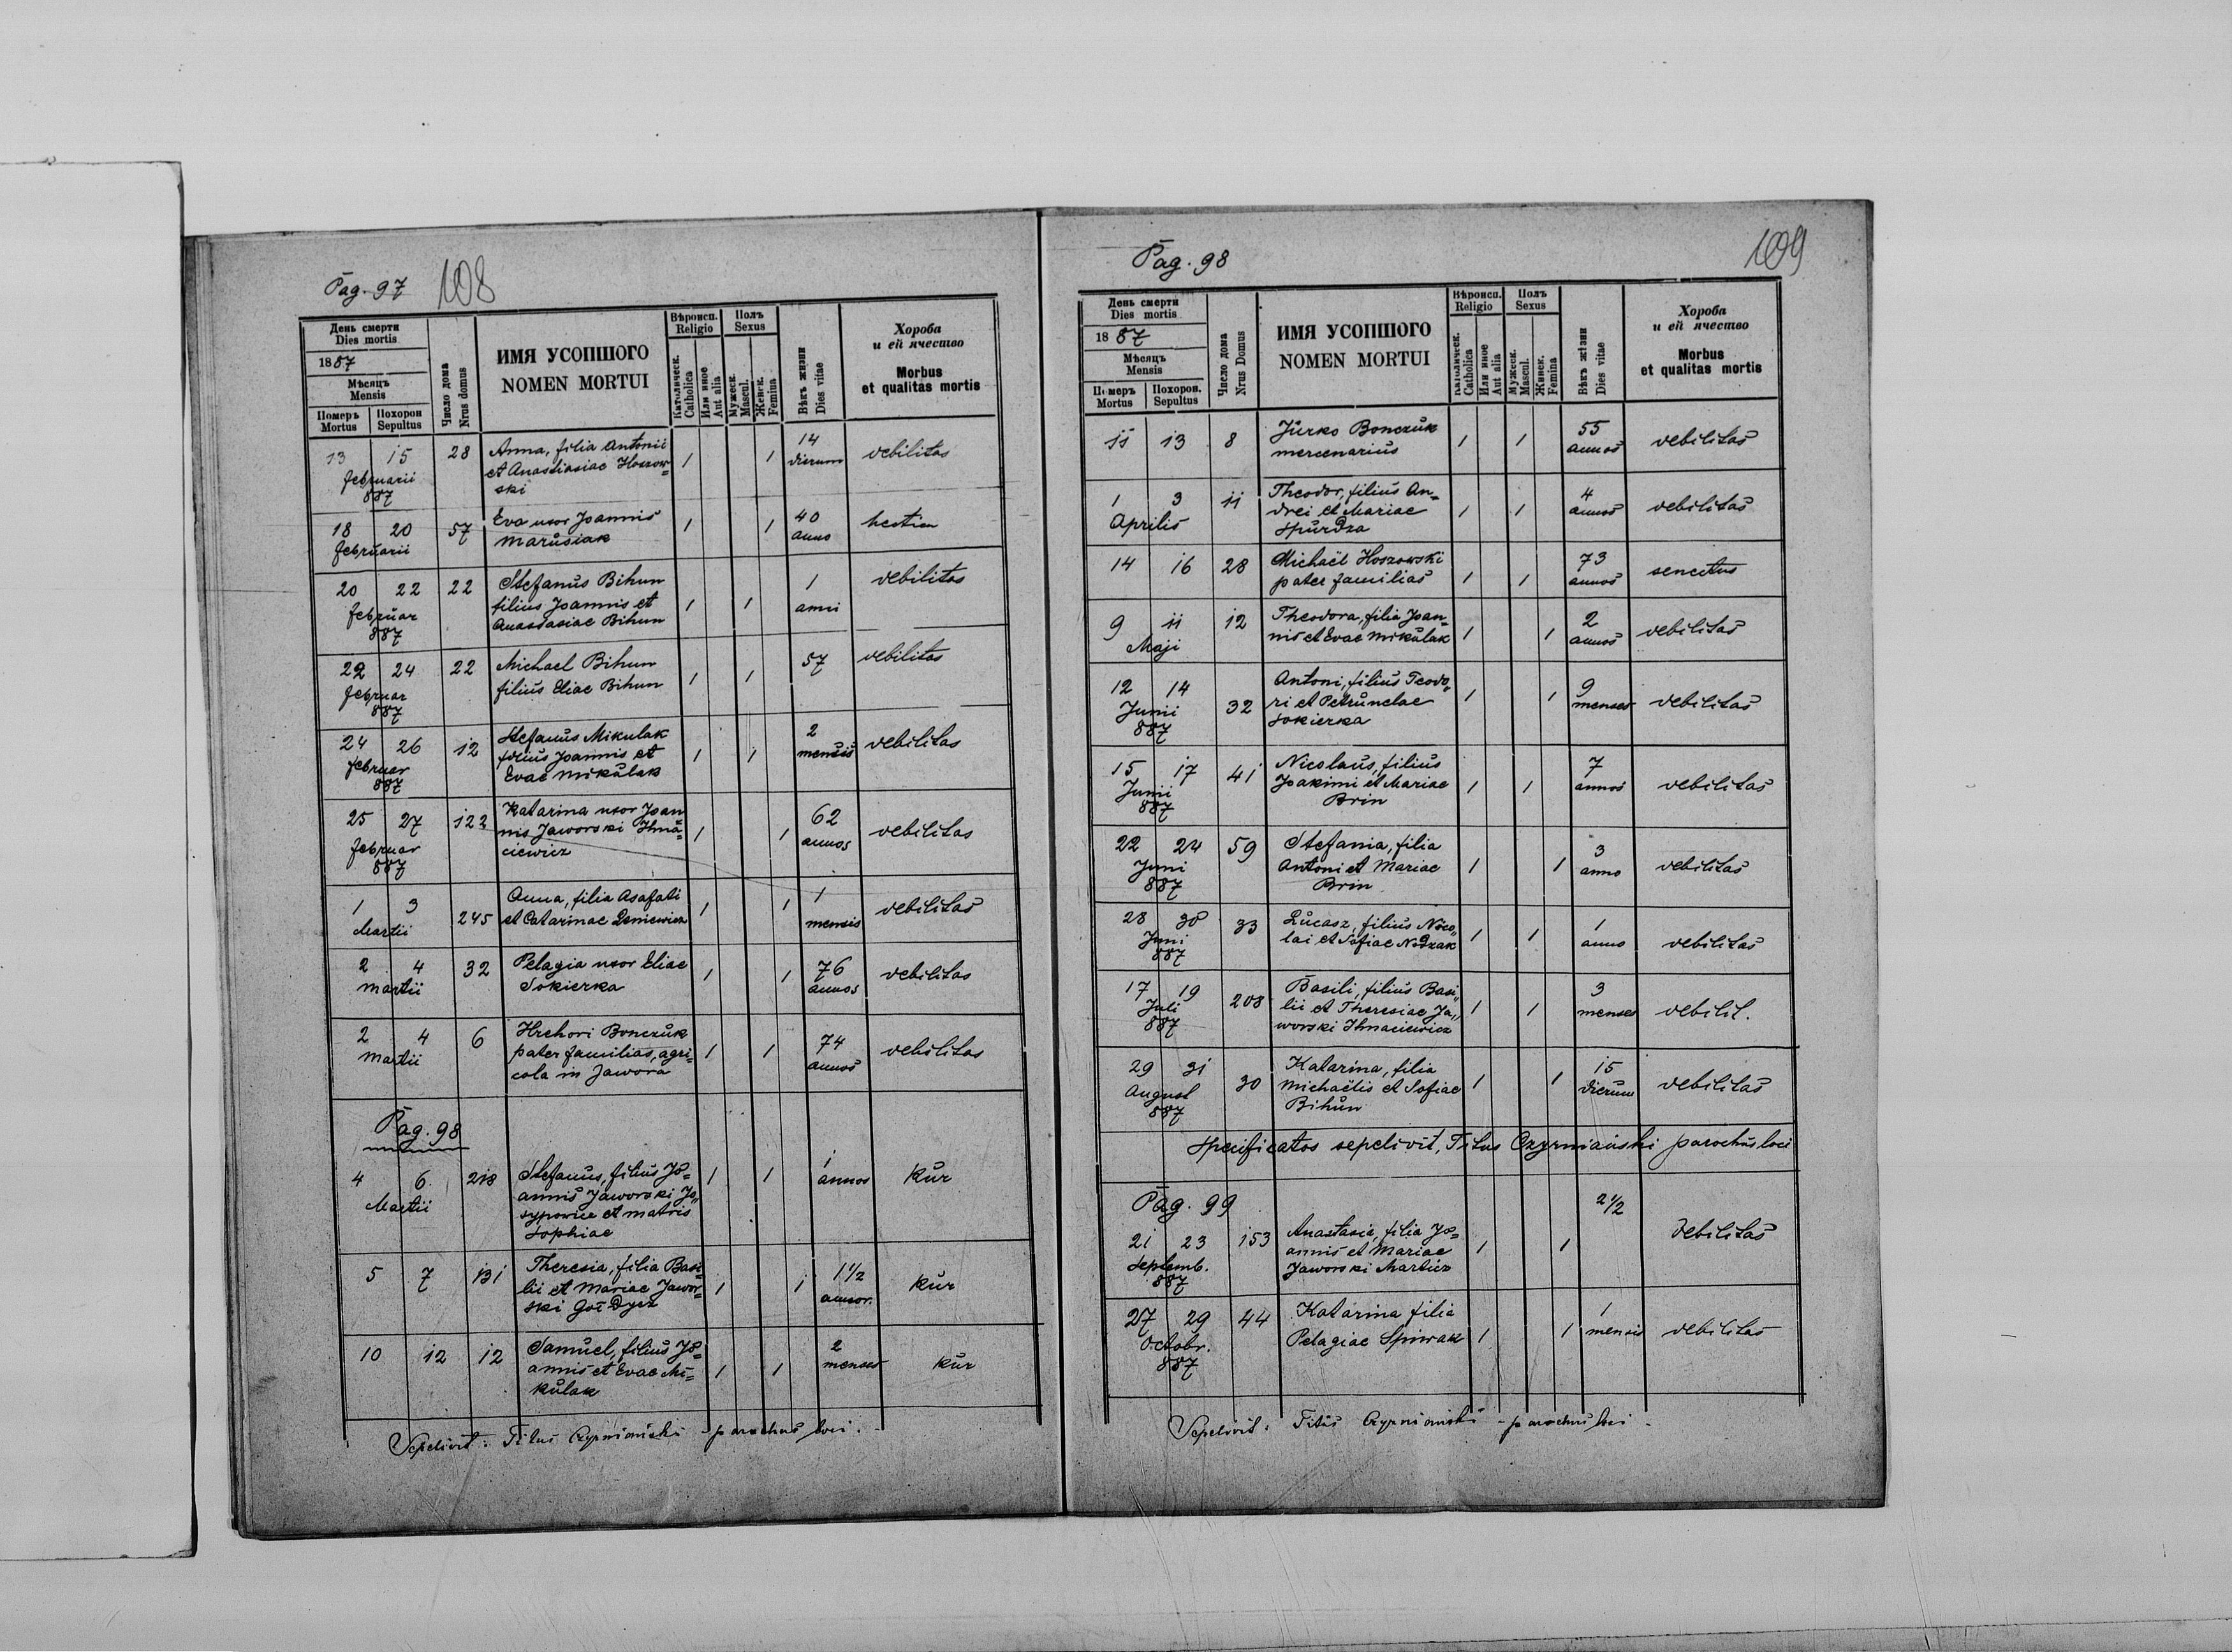 Pag. 97 108
День смерти
Dies mortis
1887
Мѣсяцъ
Mensis
Померъ Mortus
Похорон Sepultus
Число дома
Nrus domus
ИМЯ УСОПШОГО
NOMEN MORTUI
Вѣроисп.
Religio
Католическ.
Catholica
Или иное
Aut alia
Полъ
Sexus
Мужеск.
Mascul.
Женск.
Femina
Вѣкъ жизни
Dies vitae
Хороба
и ей ячество
Morbus
et qualitas mortis
13 15 28 Anna, filia Antonii 14
et Anastasiae Hoszow= 1 1 dierum debilitas
februarii ski
887
18 20 57 Eva uxor Joannis 1 1 40 hectica
februarii Marusiak anno
20 22 22 Stefanus Bihun 1 debilitas
februar filius Joannis et 1 1 anni
887 Anastasiae Bihun
22 24 22 Michael Bihun 57 debilitas
februar filius Eliae Bihun 1 1
887
24 26 12 Stefanus Mikulak 2
februar filius Joannis et 1 1 mensis debilitas
887 Evae Mikulak
25 27 122 Katarina uxor Joan 62
februar nis Jaworski Ihna= 1 1 annos debilitas
887 ciewicz
1 3 Anna, filia Asafati 1
Martii 245 et Catarinae 1 1 mensis debilitas
2 4 32 Pelagia uxor Eliae 1 1 76 debilitas
martii Sokierka annos
2 4 6 Hrehori Bonczuk 74
martii pater familias, agri= 1 1 annos debilitas
cola in Jawora
Pag. 98
4 6. 218 Stefanus, filius Jo= 1 1 1 kur
Martii annis Jaworski Jo„ annos
sypowicz et matris
Sophiae
5 7 131 Theresia, filia Basi= 1 1/2
lii et Mariae Jawor= 1 1 annor. kur
ski
10 12 12 Samuel, filius Jo= 2
annis et Evae Mi= 1 1 menses kur
kulak
Sepelivit: Titus Czyrniański - parochus loci. -
Pag. 98 109
День смерти
Dies mortis
1887
Мѣсяцъ
Mensis
Померъ Mortus
Похорон. Sepultus
Число дома
Nrus Domus
ИМЯ УСОПШОГО
NOMEN MORTUI
Вѣроисп.
Religio
Католическ.
Catholica
Или иное
Aut alia
Полъ
Sexus
Мужеск.
Mascul.
Женск.
Femina
Вѣкъ жізни
Dies vitae
Хороба
и ей ячество
Morbus
et qualitas mortis
11 13 8 Jurko Bonczuk 1 1 55 debilitas
mercenarius annos
1 3 11 Theodor, filius An= 4
Aprilis drei et Mariae 1 1 annos debilitas
Spurdza
14 16 28 Michaël Hoszowski 73 senectus
pater familias 1 1 annos
9 11 12 Theodora, filia Joan= 2
Maji nis et Evae Mikulak 1 1 annos debilitas
12 14 Antoni, filius Teodo„ 9
Junii 32 ri et Petrunelae 1 1 menses debilitas
887 Sokierka
15 17 41 Nicolaus, filius 7
Junii Joakimi et Mariae 1 1 annos debilitas
887 Brin
22 24 59 Stefania, filia 3
Juni Antoni et Mariae 1 1 anno debilitas
887 Brin
28 30 33 Lucasz, filius Nico„ 1
Juni lai et Sofiae Nodzak 1 1 anno debilitas
887
17 19 208 Basili, filius Basi„ 3
Juli lii et Theresiae Ja„ 1 1 menses debilit.
887 worski Ihnaciewicz
29 31 30 Katarina, filia 15
August Michaëlis et Sofiae 1 1 dierum debilitas
887 Bihun
Specificatos sepelivit, Titus Czyrniański parochus loci
Pag. 99 2 1/2
21 23 153 Anastasia, filia Jo= debilitas
Septemb. annis et Mariae 1 1
887 Jaworski Marticz
27 29 44 Katarina filia 1
Octobr. Pelagiae Spiwak 1 1 mensis debilitas
887
Sepelivit: Titus Czyrniański - parochus loci -